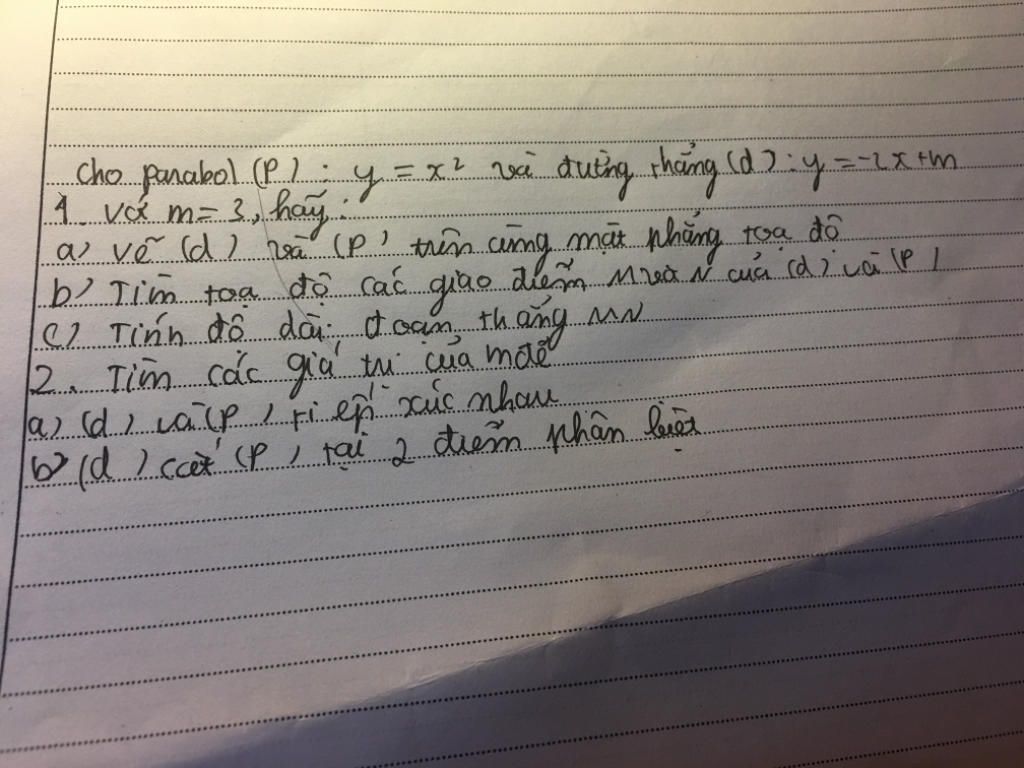 Cho parabol (P) : y = x² và đường thẳng (d) : y = -2x + m
1. Với m = 3, hãy :
a) vẽ (d) và (P) trên cùng mặt phẳng toạ độ
b) Tìm toạ độ các giao điểm M và N của (d) và (P)
c) Tính độ dài đoạn thẳng MN
2. Tìm các giá trị của m để
a) (d) và (P) tiếp xúc nhau
b) (d) cắt (P) tại 2 điểm phân biệt